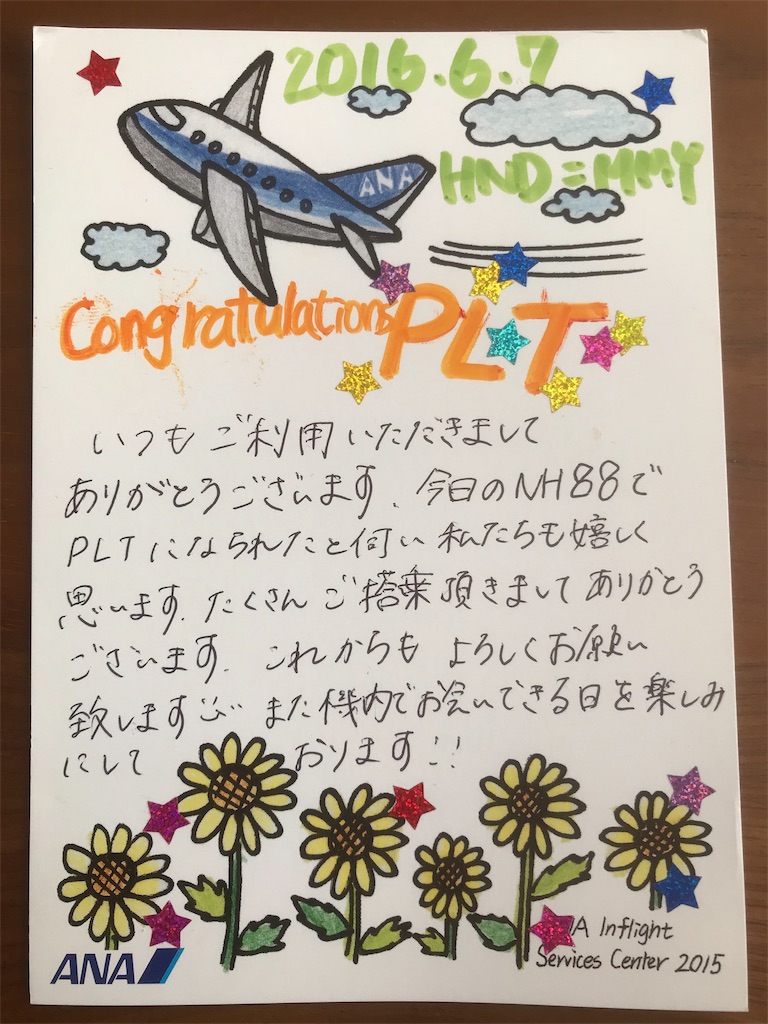 2016.6.7
HND=MMY
ANA
Congratulations PLT
いつもご利用いただきまして
ありがとうございます。今日のNH88で
PLTになられたと伺い私たちも嬉しく
思います。たくさんご搭乗頂きましてありがとう
ございます。これからもよろしくお願い
致します また機内でお会いできる日を楽しみ
にして おります!!
A Inflight
Services Center 2015
ANA